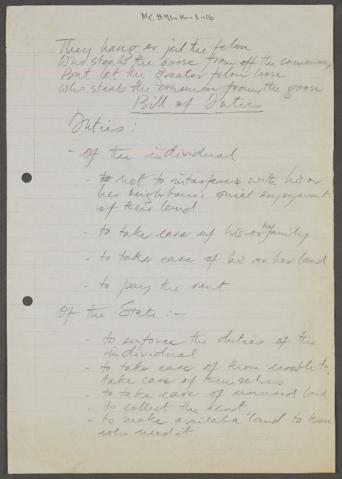 MCH91-16-3-16
They hang or jail the felon
Who steals the goose from off the common,
But let the greater felon loose
Who steals the common from the goose
Bill of Duties
Duties:
- Of the individual
- not to interfere with his or
her neighbours quiet enjoyment
of their land
- to take care of his or her family
- to take care of his or her land
- to pay the rent
Of the State:-
- to enforce the duties of the
individual
- to take care of those unable to
take care of themselves
- to take care of unused land
- to collect the rent
- to make available land to those
who need it